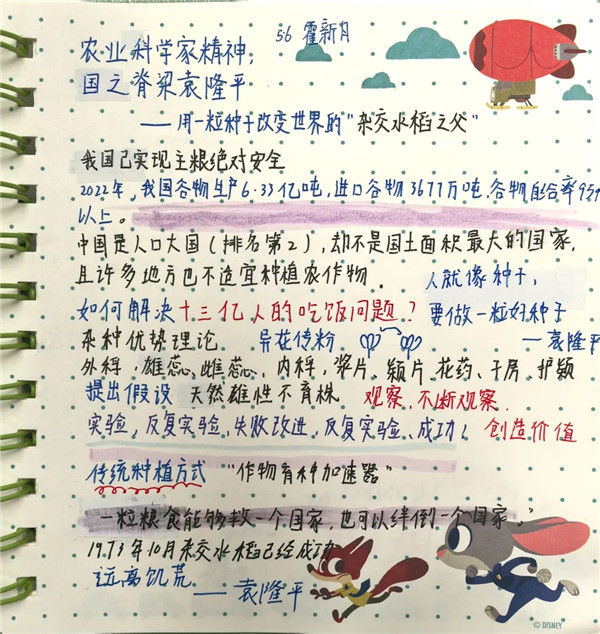 56 霍新月
农业科学家精神;
国之脊梁袁隆平
——用一粒种子改变世界的"杂交水稻之父"
我国已实现主粮绝对安全
2022年,我国谷物生产6.33亿吨,进口谷物3677万吨,谷物自给率95%
以上。
中国是人口大国(排名第2),却不是国土面积最大的国家,
且许多地方也不适宜种植农作物.
人就像种子,
如何解决十三亿人的吃饭问题?
要做一粒好种子
杂种优势理论 异花传粉
——袁隆平
外稃,雄蕊、雌蕊、内稃,浆片、颖片、花药、子房、护颖
提出假设 天然雄性不育株 观察,不断观察.
实验,反复实验、失败改进,反复实验、成功! 创造价值
传统种植方式 "作物育种加速器"
"一粒粮食能够救一个国家,也可以绊倒一个国家。"
1973年10月杂交水稻已经成功
远离饥荒 ——袁隆平
© DISNEY